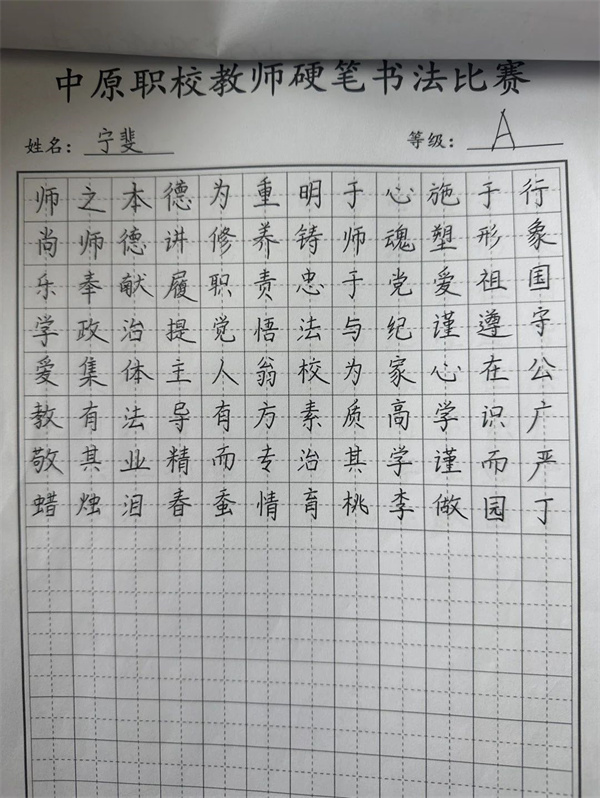 中原职校教师硬笔书法比赛
姓名：宁斐 等级：A
师之本德为重明于心施于行
尚师德讲修养铸师魂塑形象
乐奉献履职责忠于党爱祖国
学政治提觉悟法与纪谨遵守
爱集体主人翁校为家心在公
教有法导有方素质高学识广
敬其业精而专治其学谨而严
蜡烛泪春蚕情育桃李做园丁